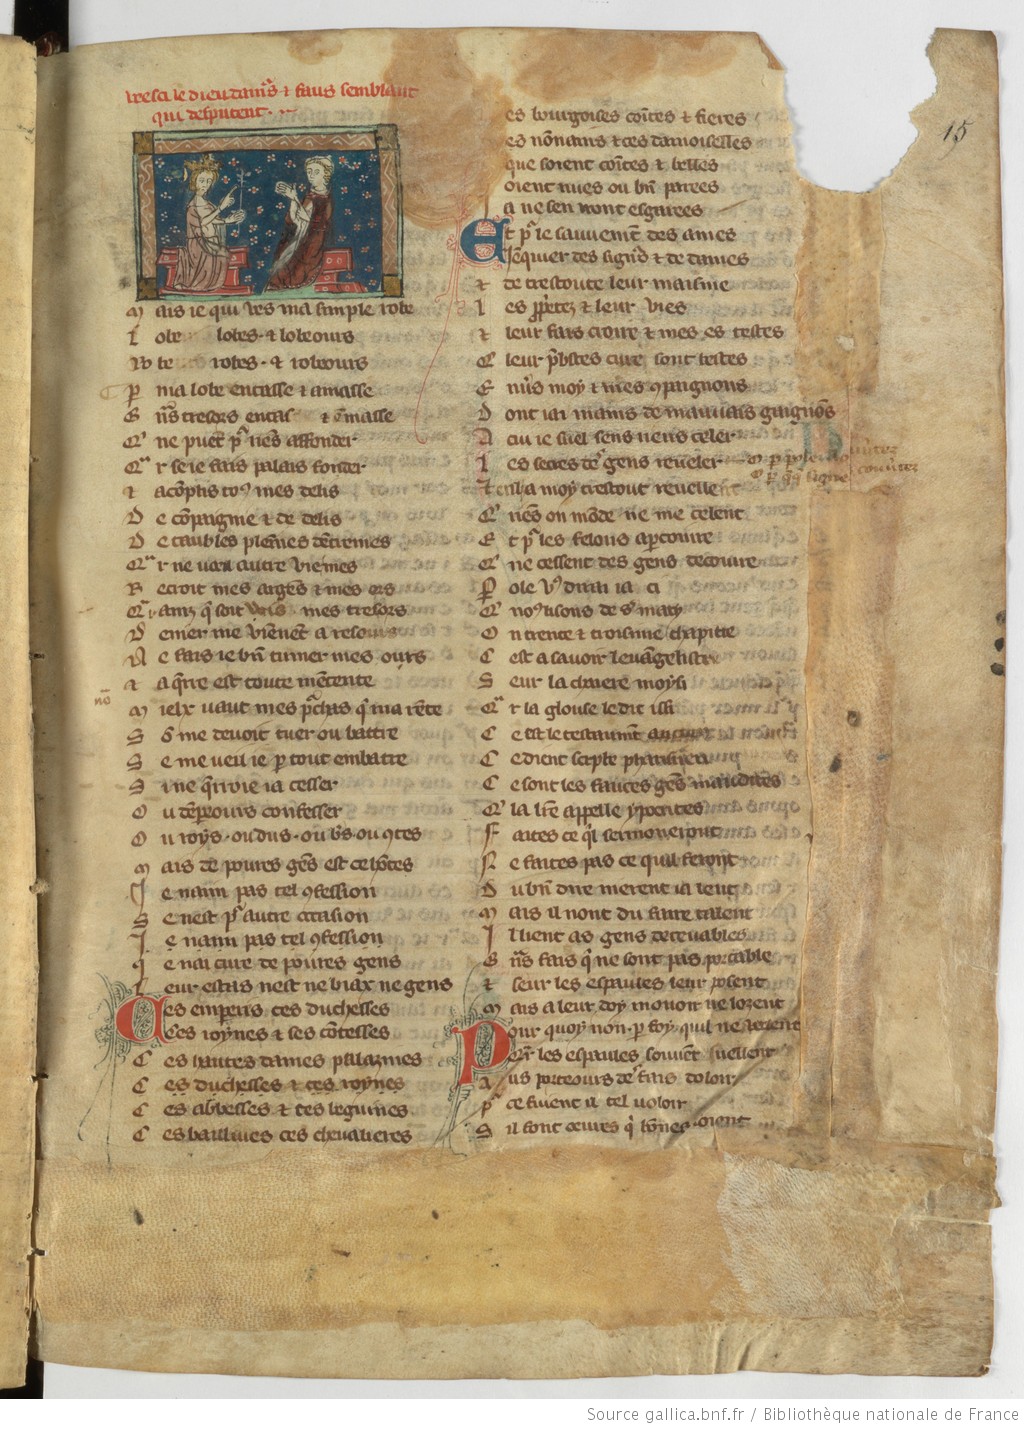 Vresci le dieu damꝰs ⁊ faus semblant
qui desputent
M ais ie qui ves ma simple robe
L obe lobes ⁊ lobeours
R obe robes ⁊ robeours
P ma lobe entasse ⁊ amasse
ne puet affonder
Q r se ie fais palais fonder
⁊ acōplis toꝰ mes delis
D e cōpaignie ⁊ de delis
D e taubles pleīnes dētremes
Q r ne vueil autre vie mes
R ecroit mes argēs ⁊ mes ors
Q r ainz q̄ soit mes tresors
D enier me viēnēt a resours
N e fais ie bn̄ turner mes ours
⁊ aq̄rre est toute mētente
M ielx vaut mes pchas q̄ ma rēte
S ō me deuoit tuer ou battre
S e me veil ie ꝑ tout embatre
S i ne q̄rroie ia cesser
O u dēpeours confesser
O u roys ou dus ou bs ou ꝯtes
M ais de poures gēs est ce hōtes
J e naim pas tel ꝯfession
S e nest pr autre occasion
J e naim pas tel ꝯfession
J e nai cure de poures gens
L eur estas nest ne biax ne gens
C es emperis ces duchesses
C es roÿnes ⁊ ses cōtesses
C es hautes dames palazines
C es duchesses ⁊ ces roÿnes
C es abbesses ⁊ ces beguines
C es baillives ces chevalieres
es bourgoises cōites ⁊ fieres
es nōnains ⁊ ces damoiselles
que soient cōites ⁊ belles
oient nues ou bn̄ parees
a ne sen iront esgarees
Et pr le sauuemt̄ des ames
Jenquier des signrs ⁊ de dames
⁊ de trestoute leur maisnie
L es ꝓprietez ⁊ leur vies
⁊ leur fais croire ⁊ mes es testes
Q leur prbstes cure sont bestes
E nūs moy ⁊ mes ꝯpaignons
D ont iai mains de mauuais gaignōs
A cui ie suel sens riens celer
L es secres de gens reueler
⁊ eulx a moy trestout reuellent
Q riēs on mōde ne me celent
E t pr les felons apcoiure
Q ne cessent des gens decoiure
P ole vꝰ dirai ia ci
Q noꝰ lisons de st mary
O n trente ⁊ troisime chapitre
C est a sauoir leuāgelistre
S eur la chaiere moysi
Q r la glouse le dit issi
C e est le testamt ancien
C e dient scripte pharisien
C e sont les fauces gēs maudites
Q la lr̄e appelle ypocrites
F aites ce q̄l sermoneront
N e faites pas ce quil feront
D u bn̄ dire nierent ia lent
M ais il nont du faire talent
J l lient as gens deceuables
G rās fais q̄ ne sont pas portable
⁊ seur les espaules leur posent
M ais a leur doy mouoir ne losent
Pour quoy non ꝑ foy quil ne
les espaules souuēt suellent
A us porteours de fais doloir
P ce fuient il tel voloir
S il font oeuures q̄ bōnes soient
15
Source gallica.bnf.fr / Bibliothèque nationale de France